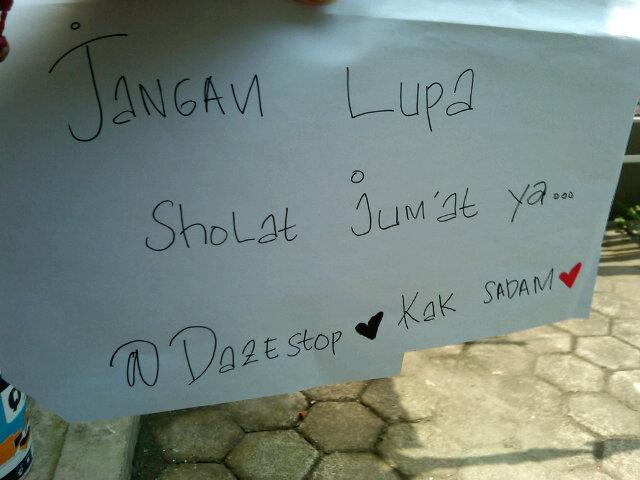 JANGAN LUPA
SHOLAT JUM'AT YA...
@DAZESTOP 🖤 KAK SADAM ❤